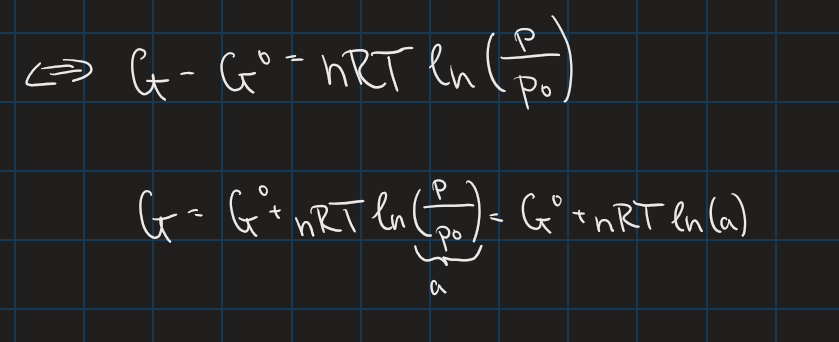 ⇔ G - G° = nRT ln(p/p₀)
G = G° + nRT ln(p/p₀) = G° + nRT ln(a)
a